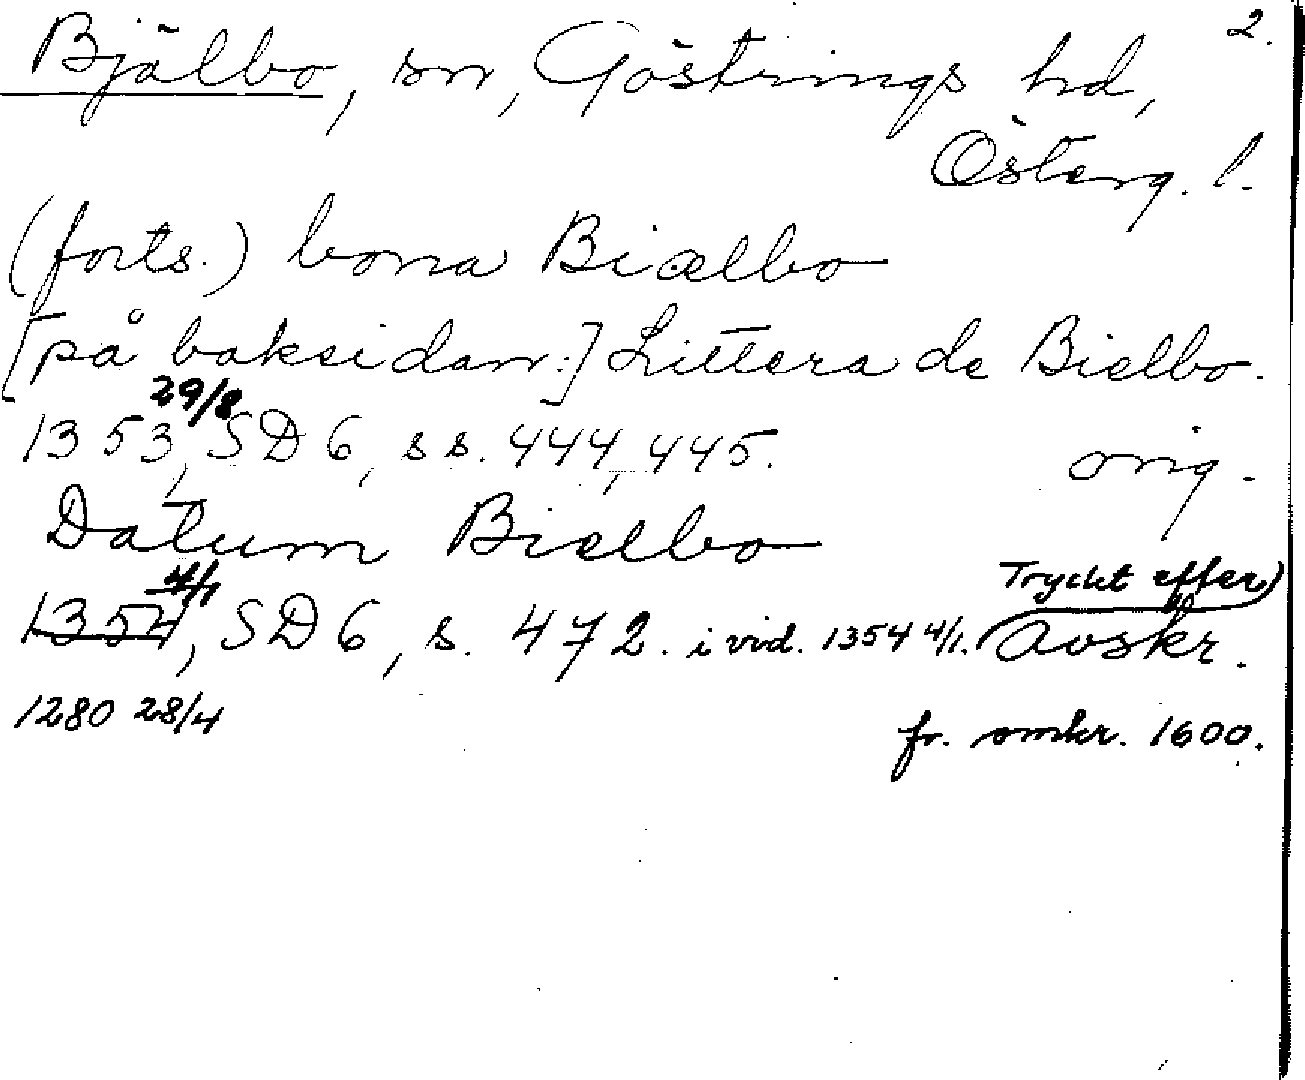 2.
Bjälbo, sn, Göstrings hd,
Österg. l.
(forts.) bona Biælbo
[på baksidan:] Littera de Bielbo.
29/8
1353, SD 6, ss. 444, 445. orig.
Datum Bielbo
4/1 Tryckt efter
1354, SD 6, s. 472. i vid. 1354 4/1. Avskr.
1280 28/4 fr. omkr. 1600.